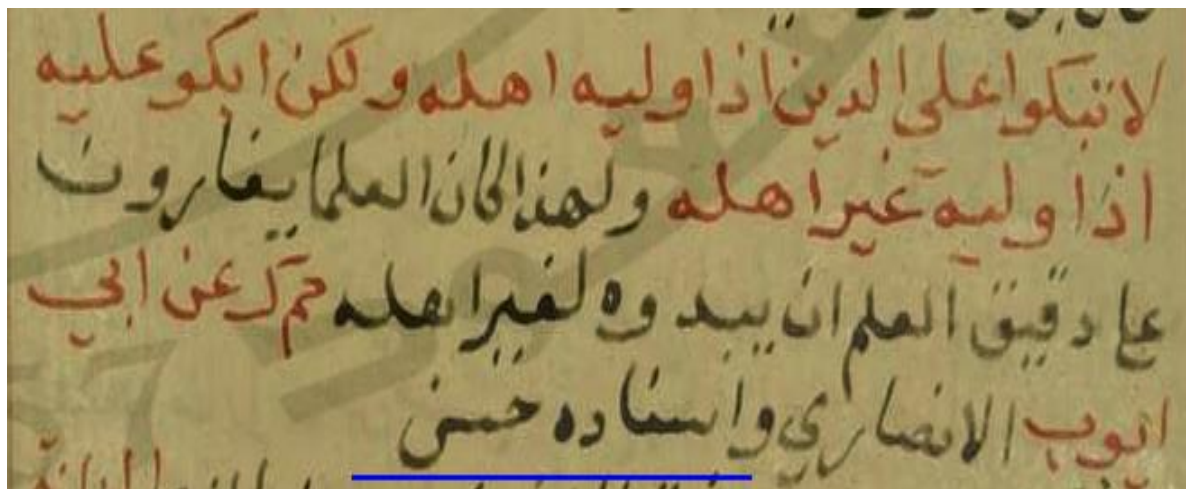 لا تبكوا على الدين اذا وليه اهله ولكن ابكو عليه
اذا وليه غير اهله ولهذا كان العلما يغارون
على دقيق العلم ان يبدوه لغير اهله حم ك عن ابي
ايوب الانصاري واسناده حسن